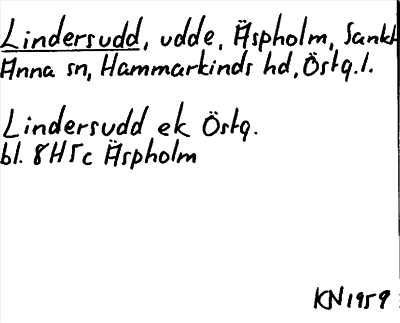 Lindersudd, udde, Äspholm, Sankt
Anna sn, Hammarkinds hd, Östg.l.
Lindersudd ek Östg.
bl. 8H5c Äspholm
KN1959